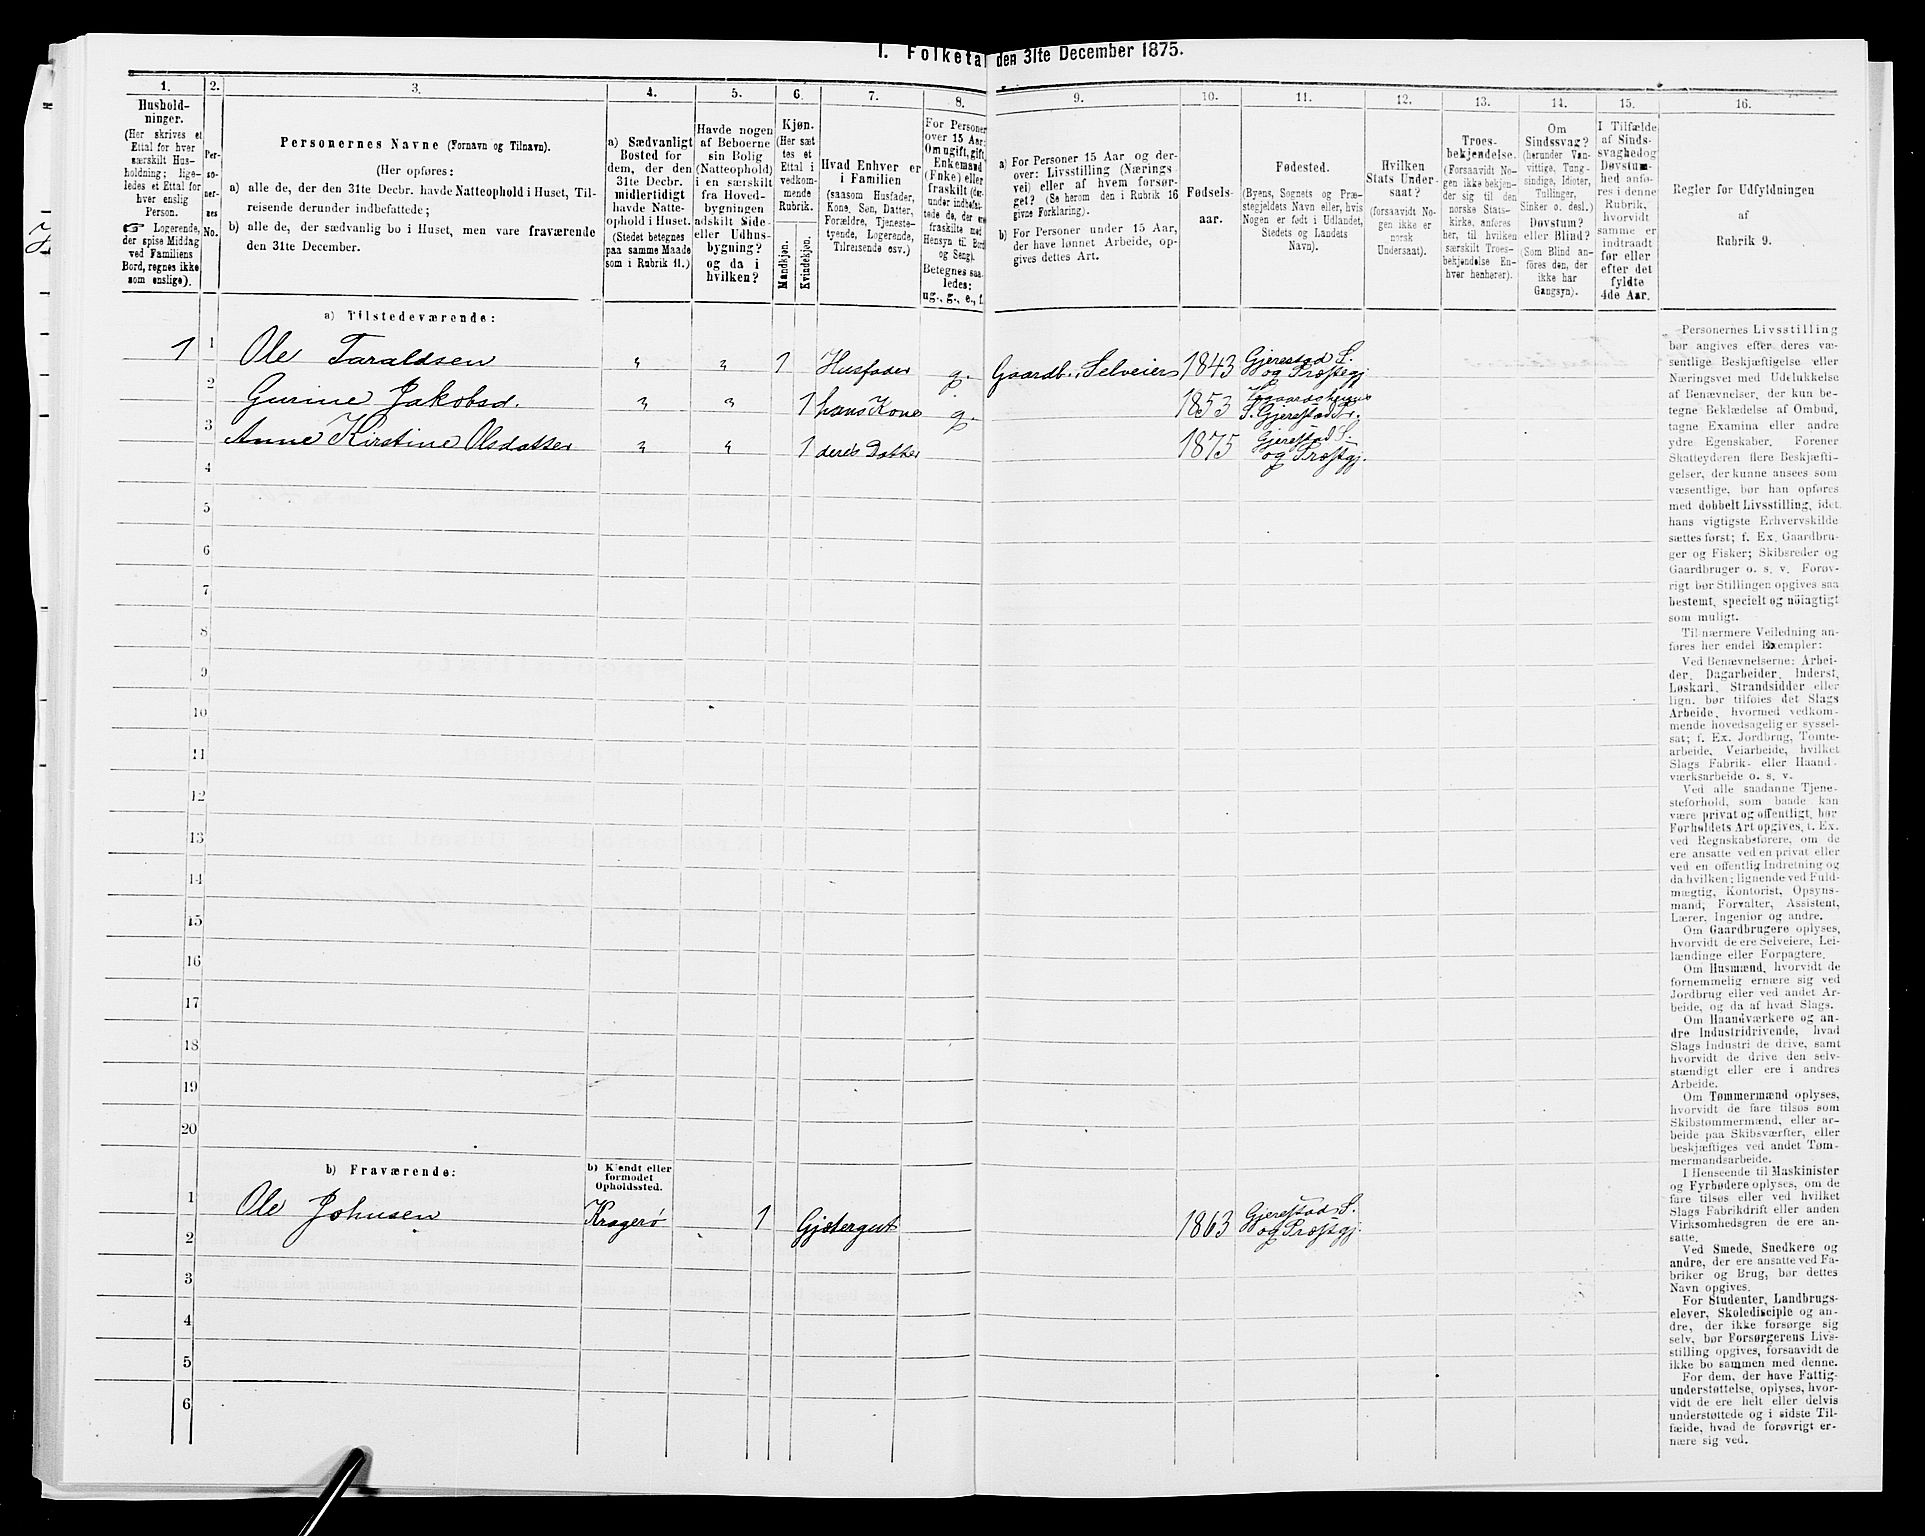 I. Folketal den 31te December 1875.
1.
Hushold-
ninger.
(Her skrives et
Ettal for hver
særskilt Hus-
holdning; lige-
ledes et Ettal for
hver enslig
Person.
☞ Logerende,
der spise Middag
ved Familiens
Bord, regnes ikke
som enslige).
2.
Per-
so-
ner-
nes
No.
3.
Personernes Navne (Fornavn og Tilnavn).
(Her opføres:
a) alle de, der den 31te Decbr. havde Natteophold i Huset, Til-
reisende derunder indbefattede;
b) alle de, der sædvanlig bo i Huset, men vare fraværende
den 31te December.
4.
a) Sædvanligt
Bosted for
dem, der den
31te Decbr.
midlertidigt
havde Natte-
ophold i Huset.
(Stedet betegnes
paa samme Maade
som i Rubrik 11.)
5.
Havde nogen
af Beboerne
sin Bolig
(Natteophold)
i en særskilt
fra Hoved-
bygningen
adskilt Side-
eller Udhus-
bygning?
og da i
hvilken?
6.
Kjøn.
(Her sæt
tes et
Ettal i
vedkom-
mende
Rubrik.
Mandkjøn.
Kvindekjøn.
7.
Hvad Enhver er
i Familien
(saasom Husfader,
Kone, Søn, Datter,
Forældre, Tjeneste-
tyende, Logerende,
Tilreisende osv.)
8.
For Personer
over 15 Aar:
Om ugift, gift,
Enkemand
(Enke) eller
fraskilt (der-
under indbefat-
tede de, der ere
fraskilte med
Hensyn til Bord
og Seng).
Betegnes saa-
ledes:
ug., g., e., f.
9.
a) For Personer 15 Aar og der-
over: Livsstilling (Nærings-
vei) eller af hvem forsør-
get? (Se herom den i Rubrik 16
givne Forklaring).
b) For Personer under 15 Aar,
der have lønnet Arbeide, op-
gives dettes Art.
10.
Fødsels-
aar.
11.
Fødested.
(Byens, Sognets og Præ-
stegjeldets Navn eller, hvis
Nogen er født i Udlandet,
Stedets og Landets
Navn).
12.
Hvilken
Stats Under-
saat?
(forsaavidt No-
gen ikke er
norsk
Undersaat).
13.
Troes-
bekjendelse.
(Forsaavidt No-
gen ikke bekjen-
der sig til den
norske Stats-
kirke, anføres
her, til hvilken
særskilt Troes-
bekjendelse En-
hver henhører).
14.
Om
Sindssvag?
(herunder Van-
vittige, Tung-
sindige, Idioter,
Tullinger,
Sinker o. desl.)
Døvstum?
eller Blind?
(Som Blind an-
føres den, der
ikke har
Gangsyn).
15.
I Tilfælde
af Sinds-
svaghed og
Døvstum-
hed anfø-
res i denne
Rubrik,
hvorvidt
samme er
indtraadt
før eller
efter det
fyldte
4de Aar.
16.
Regler for Udfyldningen
af
Rubrik 9.
a) Tilstedeværende:
1 1 Ole Taraldsen " " 1 Husfader g. Gaardb., Selveier 1843 Gjerestad S. og Præstgj.
2 Gurine Jakobsd. " " 1 hans Kone g. 1853
S. Gjerestad Pr.
3 Anne Kirstine Olsdatter " " 1 deres Datter 1875 Gjerestad S. og Præstgj.
4
5
6
7
8
9
10
11
12
13
14
15
16
17
18
19
20
b) Fraværende:
b) Kjendt eller
formodet
Opholdssted.
1 Ole Johnsen Kragerø 1 Gjetergut 1863 Gjerestad S. og Præstgj.
2
3
4
5
6
Personernes Livsstilling
bør angives efter deres væ-
sentlige Beskjæftigelse eller
Næringsvei med Udelukkelse
af Benævnelser, der kun be-
tegne Beklædelse af Ombud,
tagne Examina eller andre
ydre Egenskaber. Forener
Skatteyderen flere Beskjæfti-
gelser, der kunne ansees som
væsentlige, bør han opføres
med dobbelt Livsstilling, idet
hans vigtigste Erhvervskilde
sættes først; f. Ex. Gaardbru-
ger og Fisker; Skibsreder og
Gaardbruger o. s. v. Forøv-
rigt bør Stillingen opgives saa
bestemt, specielt og nöiagtigt
som muligt.
Til nærmere Veiledning an-
føres her endel Exempler:
Ved Benævnelserne: Arbei-
der, Dagarbeider, Inderst,
Løskarl, Strandsidder eller
lign. bør tilføies det Slags
Arbeide, hvormed vedkom-
mende hovedsagelig er syssel-
sat; f. Ex. Jordbrug, Tomte-
arbeide, Veiarbeide, hvilket
Slags Fabrik- eller Haand-
værksarbeide o. s. v.
Ved alle saadanne Tjene-
steforhold, som baade kan
være privat og offentligt, bør
Forholdets Art opgives, t. Ex.
ved Regnskabsførere, om de
ere ansatte ved en privat eller
ved en offentlig Indretning og
da hvilken; lignende ved Fuld-
mægtig, Kontorist, Opsyns-
mand, Forvalter, Assistent,
Lærer, Ingeniør og andre.
Om Gaardbrugere oplyses,
hvorvidt de ere Selveiere, Lei-
lændinge eller Forpagtere.
Om Husmænd, hvorvidt de
fornemmelig ernære sig ved
Jordbrug eller ved andet Ar-
beide, og da af hvad Slags.
Om Haandværkere og an-
dre Industridrivende, hvad
Slags Industri de drive, samt
hvorvidt de drive den selv-
stændigt eller ere i andres
Arbeide.
Om Tømmermænd oplyses,
hvorvidt de fare tilsøs som
Skibstømmermænd, eller ar-
beide paa Skibsværfter, eller
beskjæftiges ved andet Tøm-
mermandsarbeide.
I Henseende til Maskinister
og Fyrbødere oplyses, om de
fare tilsøs eller ved hvilket
Slags Fabrikdrift eller anden
Virksomhedsgren de ere an-
satte.
Ved Smede, Snedkere og
andre, der ere ansatte ved Fa-
briker og Brug, bør dettes
Navn opgives.
For Studenter, Landbrugs-
elever, Skoledisciple og an-
dre, der ikke forsørge sig
selv, bør Forsørgerens Livs-
stilling opgives, forsaavidt de
ikke bo sammen med denne.
For dem, der have Fattig-
understøttelse, oplyses, hvor-
vidt de ere helt eller delvis
understøttede og i sidste Til-
fælde, hvad de forøvrigt er-
nære sig ved.